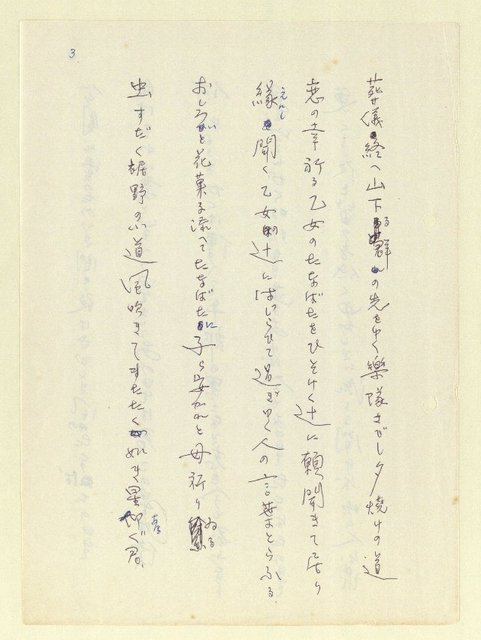 3
葬儀終へ山下る群の先をゆく樂隊さびし夕焼けの道
恋の幸祈る乙女のたなばたをひそけく辻に願聞きて居り
縁聞く乙女辻にはぢらひて過ぎ(ゆ)く人の言葉とらふる
おしろいと花菓子流へてたなばたに子ら安かれと母祈りゐる
虫すだく裾野の小道風吹きてまたたく星仰ぐ君